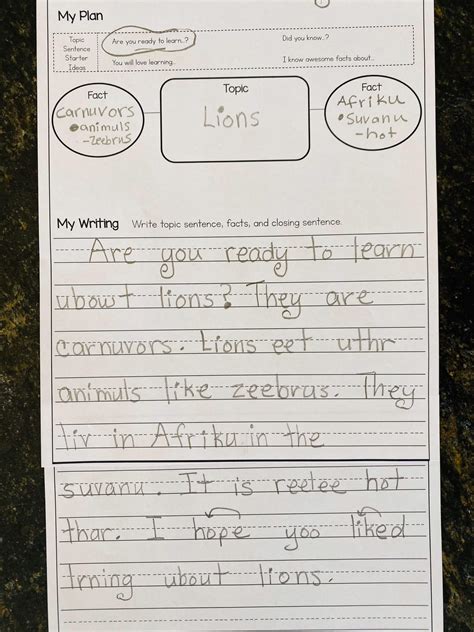 My Plan
Topic
Sentence
Starter
Ideas
Are you ready to learn..?
Did you know..?
You will love learning..
I know awesome facts about..
Fact
carnuvors
animuls
-zeebrus
Topic
Lions
Fact
Afriku
suvanu
-hot
My Writing Write topic sentence, facts, and closing sentence.
Are you ready to learn
ubowt lions? They are
carnuvors. Lions eet uthr
animuls like zeebrus. They
liv in Afriku in the
suvanu. It is reelee hot
thar. I hope yoo liked
lrning ubout lions.